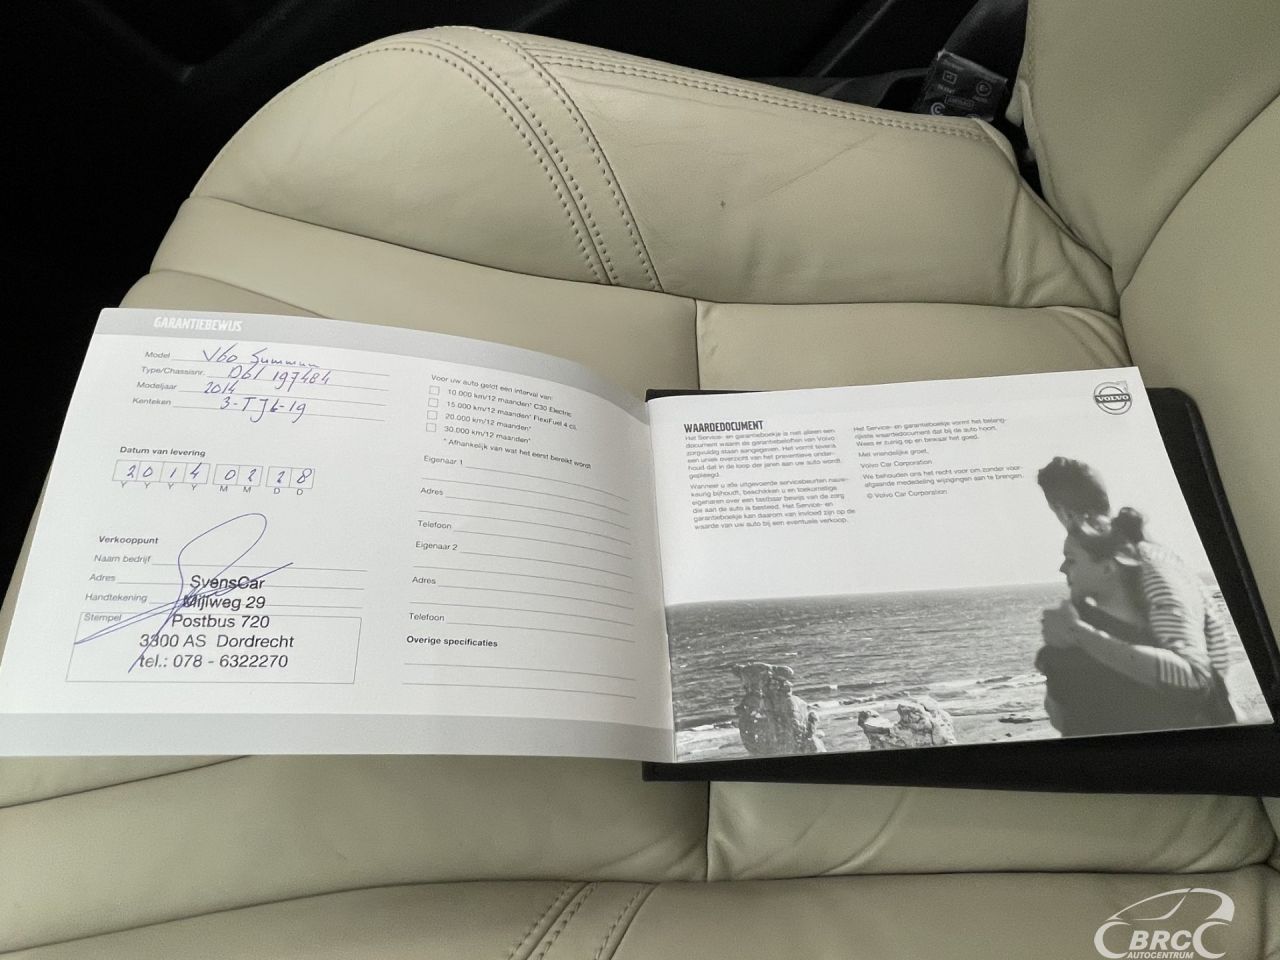 GARANTIEBEWIJS
Model V60 Summum
Type/Chassisnr. D61 197484
Modeljaar 2014
Kenteken 3-TJL-19
Datum van levering
2 0 1 4 0 2 2 8
Y Y Y Y M M D D
Verkooppunt
Naam bedrijf
Adres
Handtekening
Stempel
SvensCar
Mijlweg 29
Postbus 720
3300 AS Dordrecht
tel.: 078 - 6322270
Voor uw auto geldt een interval van:
10.000 km/12 maanden* C30 Electric
15.000 km/12 maanden* FlexiFuel 4 cil.
20.000 km/12 maanden*
30.000 km/12 maanden*
* Afhankelijk van wat het eerst bereikt wordt
Eigenaar 1
Adres
Telefoon
Eigenaar 2
Adres
Telefoon
Overige specificaties
WAARDEDOCUMENT
Het Service- en garantieboekje is niet alleen een
document waarin de garantiebeloften van Volvo
zorgvuldig staan aangegeven. Het vormt tevens
een uniek overzicht van het preventieve onder-
houd dat in de loop der jaren aan uw auto wordt
gepleegd.
Wanneer u alle uitgevoerde servicebeurten nauw-
keurig bijhoudt, beschikken u en toekomstige
eigenaren over een tastbaar bewijs van de zorg
die aan de auto is besteed. Het Service- en
garantieboekje kan daarom van invloed zijn op de
waarde van uw auto bij een eventuele verkoop.
Het Service- en garantieboekje vormt het belang-
rijkste waardedocument dat bij de auto hoort.
Wees er zuinig op en bewaar het goed.
Met vriendelijke groet,
Volvo Car Corporation
We behouden ons het recht voor om zonder voor-
afgaande mededeling wijzigingen aan te brengen.
© Volvo Car Corporation
VOLVO
BRC
AUTOCENTRUM